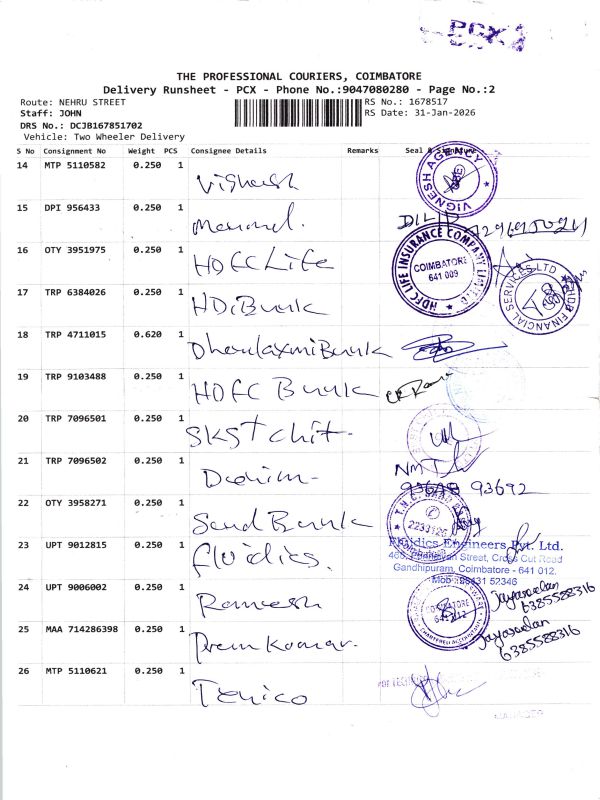 PCX
THE PROFESSIONAL COURIERS, COIMBATORE
Delivery Runsheet - PCX - Phone No.:9047080280 - Page No.:2
Route: NEHRU STREET
RS No.: 1678517
Staff: JOHN
RS Date: 31-Jan-2026
DRS No.: DCJB167851702
Vehicle: Two Wheeler Delivery
S No Consignment No Weight PCS Consignee Details Remarks Seal & Signature
14 MTP 5110582 0.250 1 VIGNESH AGENCY
15 DPI 956433 0.250 1 DILIP
16 OTY 3951975 0.250 1 HDFC Life
HDFC LIFE INSURANCE COMPANY LIMITED
COIMBATORE
641 009
17 TRP 6384026 0.250 1 FINANCIAL SERVICES LTD
18 TRP 4711015 0.620 1 DhanlaxmiBunk
19 TRP 9103488 0.250 1 HDFC Bunk
20 TRP 7096501 0.250 1 SKST chit.
21 TRP 7096502 0.250 1
93692
22 OTY 3958271 0.250 1 Sand Bunk
23 UPT 9012815 0.250 1 fluidics.
Engineers Pvt. Ltd.
Street, Cross Cut Road
Gandhipuram, Coimbatore - 641 012.
52346
24 UPT 9006002 0.250 1 Ramesh
COIMBATORE
CHARTERED ACCOUNTANTS
Jayaseelan
6385588316
25 MAA 714286398 0.250 1 Prem Kumar.
Jayaseelan
6385588316
26 MTP 5110621 0.250 1 Tenico
MANAGER